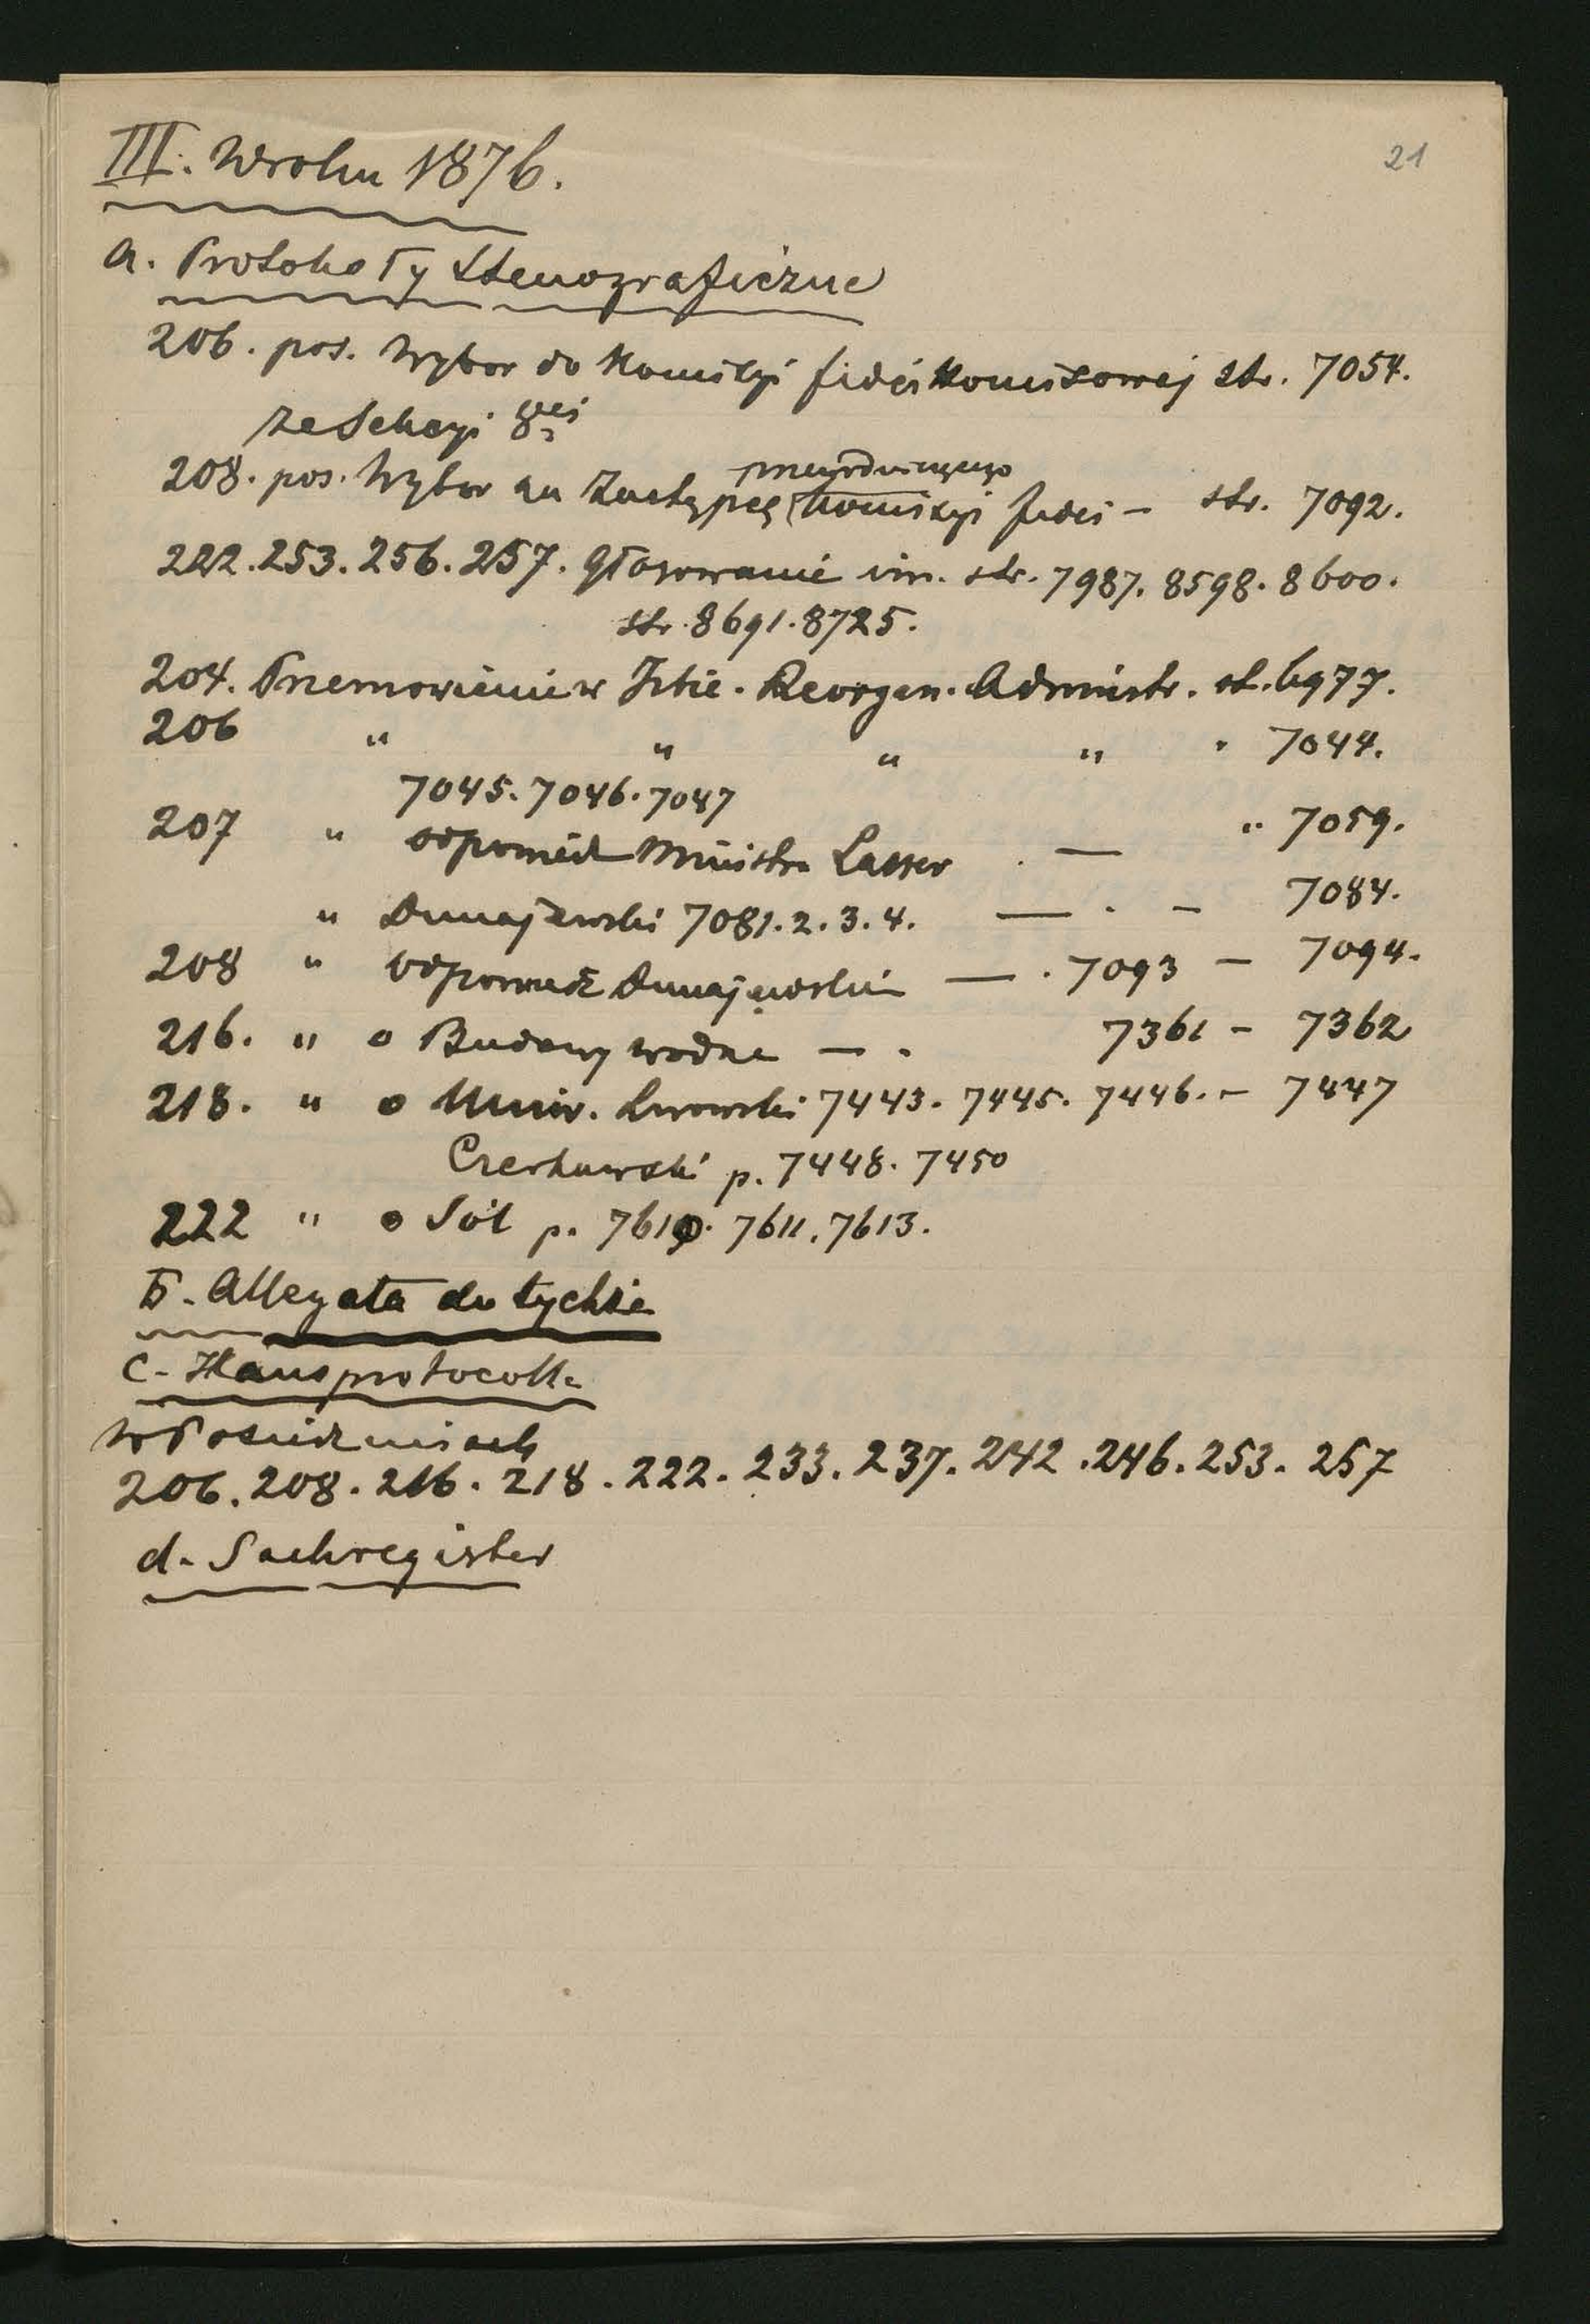 21
III. W roku 1876.
a. Protokoły Stenograficzne
206. pos. Wybor do Komisyi fideikomisowej str. 7054.
ze Sekcyi 8ej
przewodniczącego
208. pos. Wybor na Zastępcę Komisyi fidei – str. 7092.
222. 253. 256. 257. Głosowanie im. str. 7987. 8598. 8600.
str. 8691. 8725.
204. Przemowienie w Izbie. Reorgan. Administr. st. 6977.
206 " " " " " 7044.
7045. 7046. 7047
207 " odpowiedź Ministra Lasser . — " 7059.
" Dunajewski 7081. 2. 3. 4. — . – 7084.
208 " Odpowiedź Dunajewskim — . 7093 – 7094.
216. " o Budowy wodne — . 7361 – 7362
218. " o Uniw. Lwowski 7443. 7445. 7446. – 7447
Czerkawski p. 7448. 7450
222 " o Sól p. 7610. 7611. 7613.
b. Allegata du tychże
c. Hausprotocolle
W Posiedzeniach
206. 208. 216. 218. 222. 233. 237. 242. 246. 253. 257
d. Sachregister